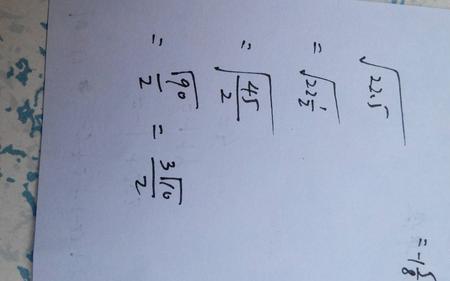 √22.5
= √22 1/2
= √(45/2)
= √90/2 = 3√10/2
= -1 5/8